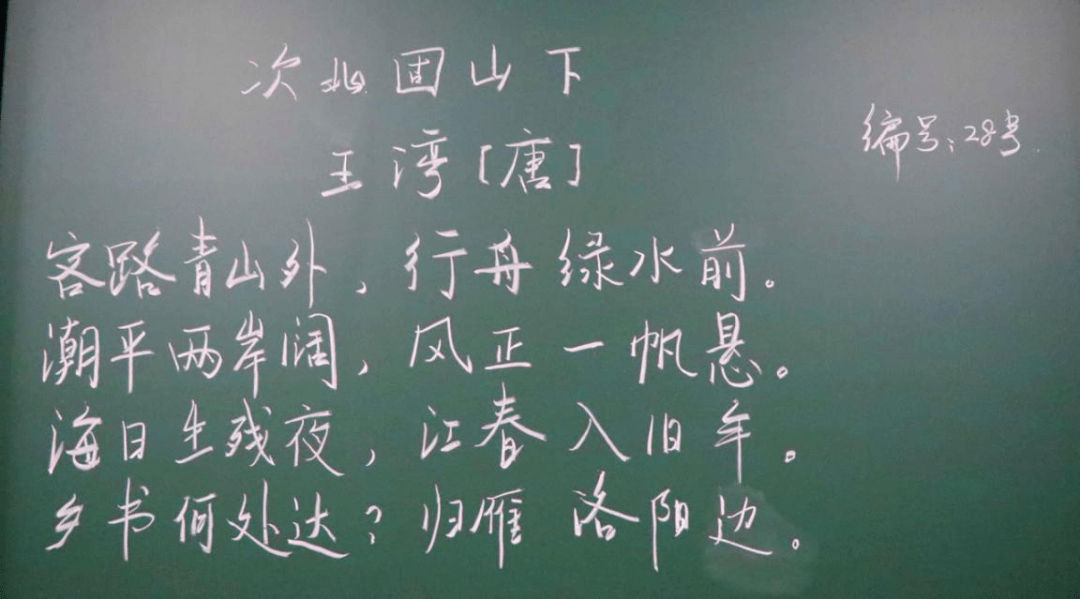 次北固山下
编号:28号
王湾[唐]
客路青山外,行舟绿水前。
潮平两岸阔,风正一帆悬。
海日生残夜,江春入旧年。
乡书何处达?归雁洛阳边。